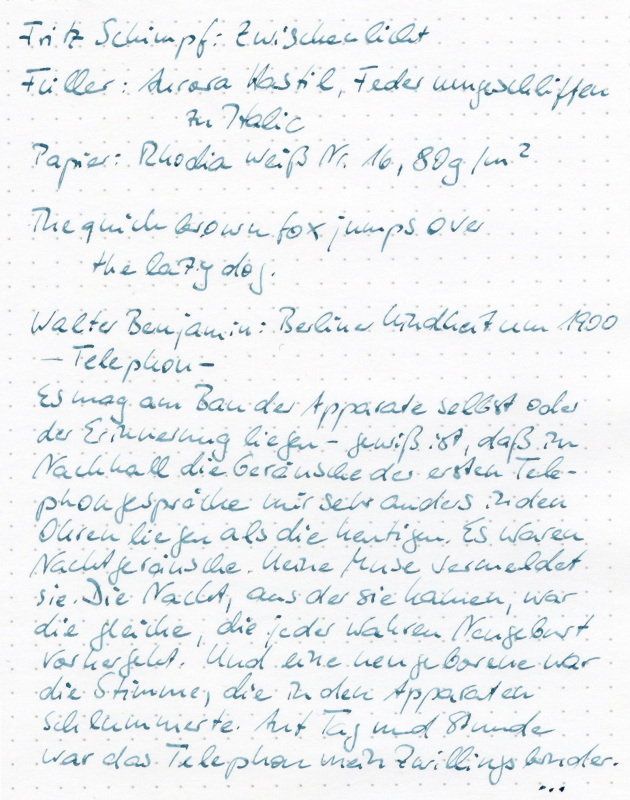 Fritz Schimpf: Zwischenlicht
Füller: Aurora Hastil, Feder umgeschliffen
zu Italic
Papier: Rhodia weiß Nr. 16, 80g/m²
The quick brown fox jumps over
the lazy dog.
Walter Benjamin: Berliner Kindheit um 1900
— Telephon —
Es mag am Bau der Apparate selbst oder
der Erinnerung liegen – gewiß ist, daß im
Nachhall die Geräusche der ersten Tele-
phongespräche mir sehr anders in den
Ohren liegen als die heutigen. Es waren
Nachtgeräusche. Keine Muse vermeldet
sie. Die Nacht, aus der sie kamen, war
die gleiche, die jeder wahren Neugeburt
vorhergeht. Und eine neugeborene war
die Stimme, die in den Apparaten
schlummerte. Auf Tag und Stunde
war das Telephon mein Zwillingsbruder.
...